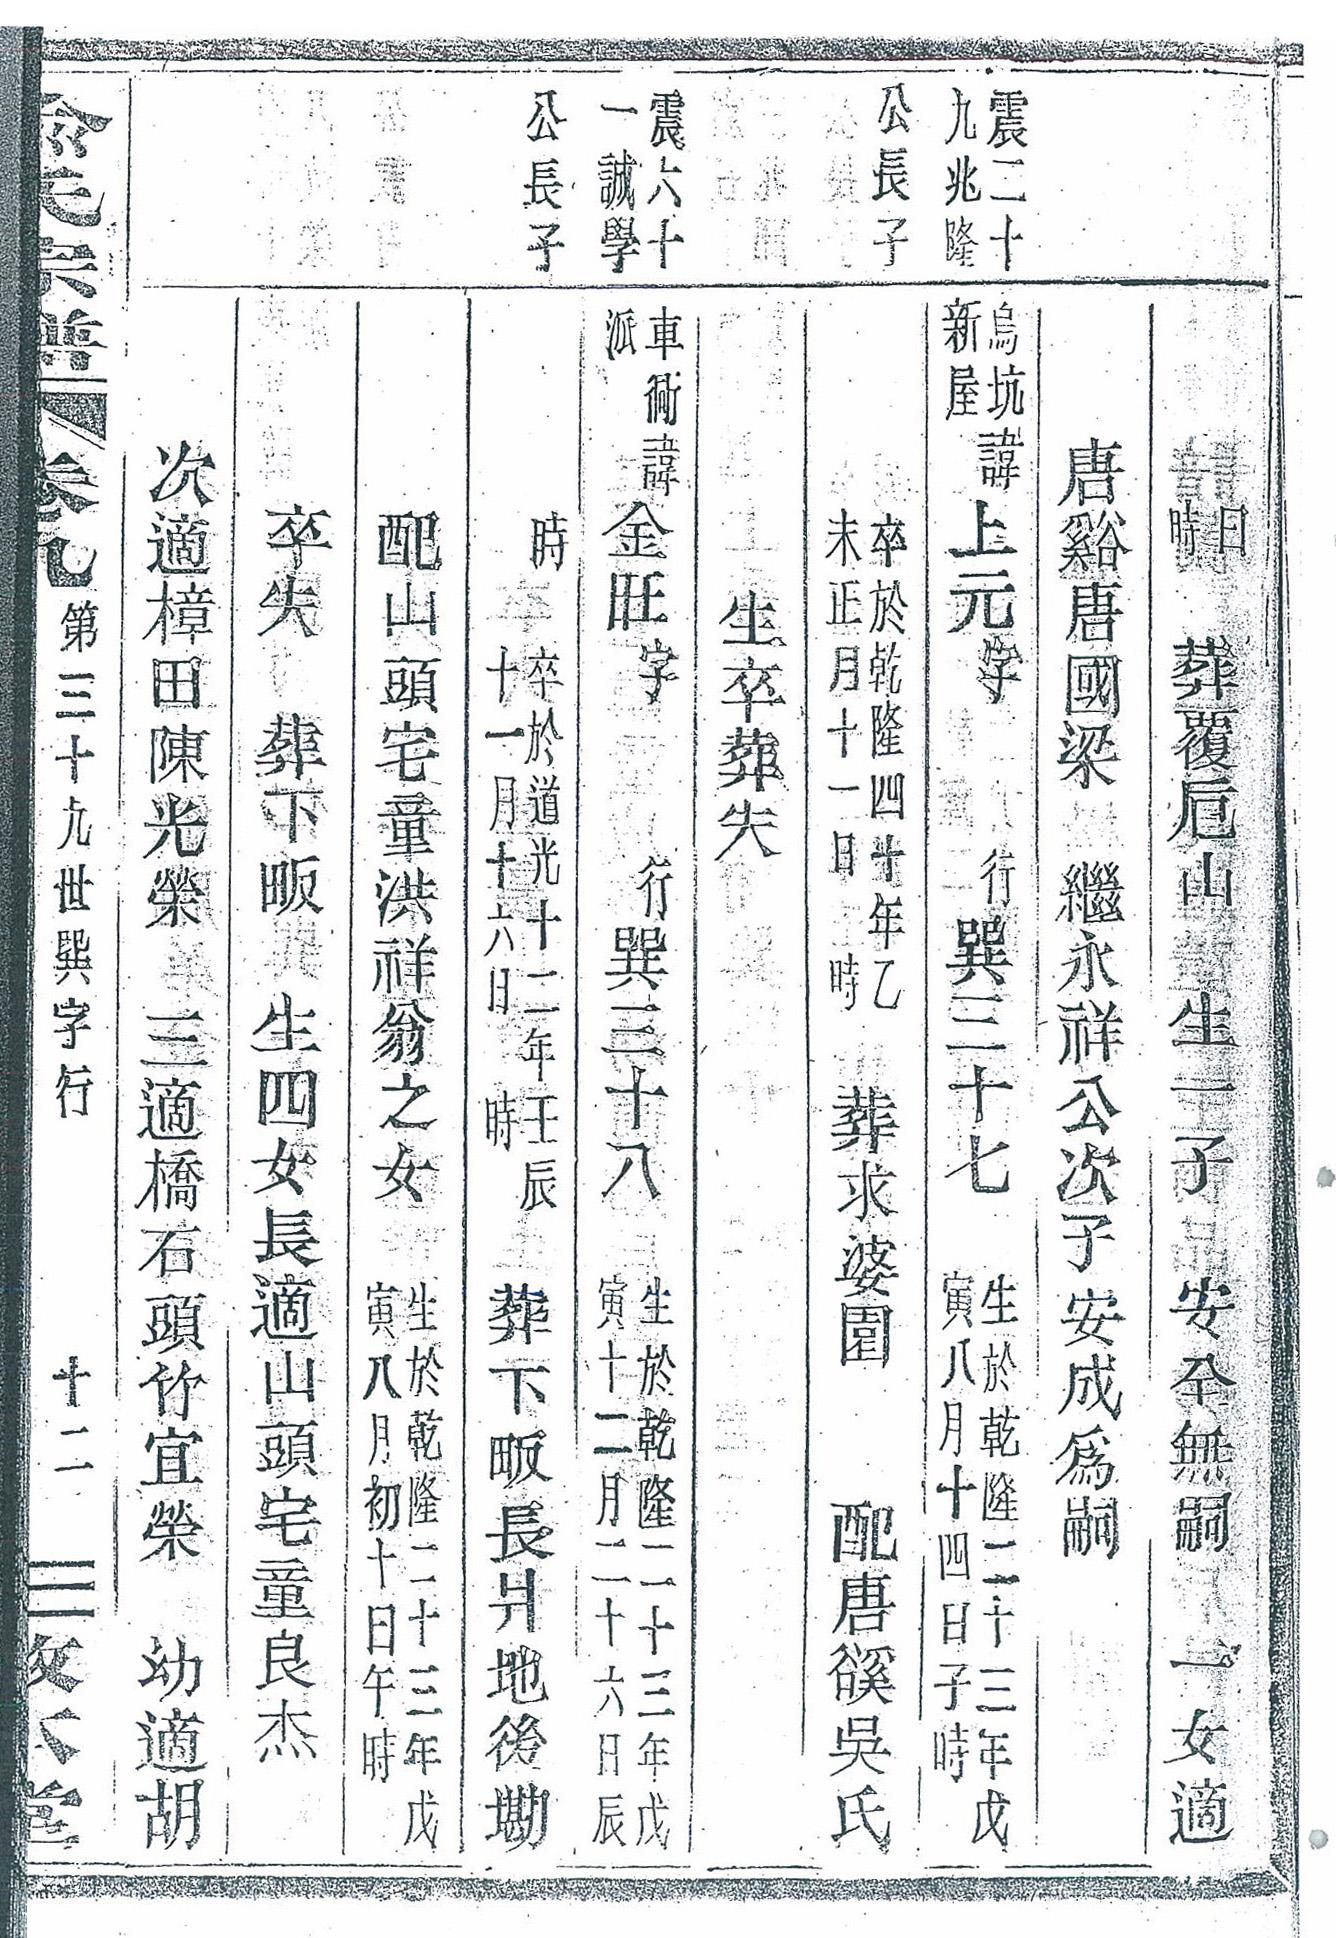 日
時
葬覆卮山 生一子 安全無嗣 一女適
唐谿唐國梁 繼永祥公次子安成為嗣
震二十
九兆隆
公長子
烏坑
新屋
諱上元字 行巽三十七 生於乾隆二十三年戊
寅八月十四日子時
卒於乾隆四十年乙
未正月十一日 時
葬求婆園 配唐谿吳氏
生卒葬失
震六十
一誠學
公長子
車衕
派
諱金旺字 行巽三十八 生於乾隆二十三年戊
寅十二月二十六日辰
時
卒於道光十二年壬辰
十一月十六日 時
葬下畈長爿地後墈
配山頭宅童洪祥翁之女 生於乾隆二十三年戊
寅八月初十日午時
卒失 葬下畈 生四女長適山頭宅童良杰
次適樟田陳光榮 三適橋石頭竹宜榮 幼適胡
俞氏宗譜 卷九 第三十九世巽字行 十二 敦本堂